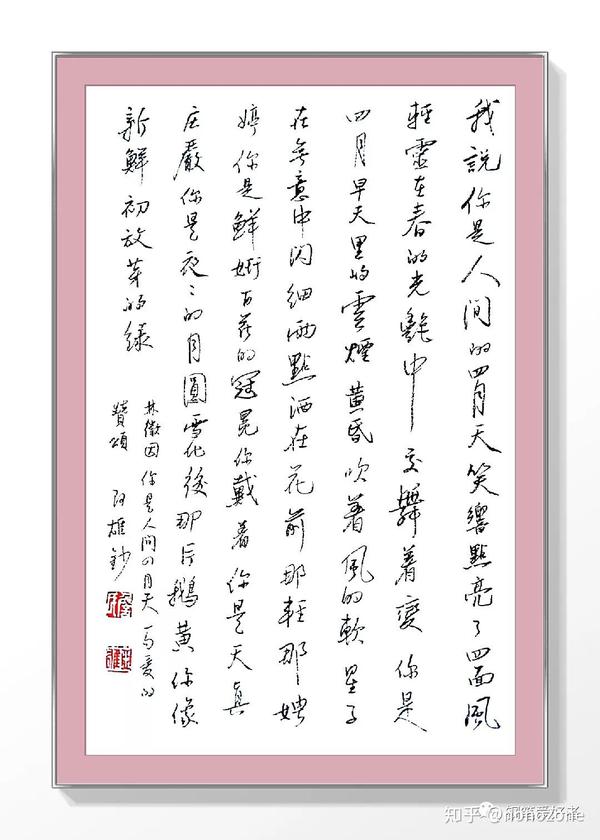 我說你是人间的四月天笑響點亮了四面風
輕靈在春的光艷中交舞着變你是
四月早天里的雲煙黄昏吹着風的軟星子
在無意中闪细雨點洒在花前那輕那娉
婷你是鮮妍百花的冠冕你戴着你是天真
庄嚴你是夜〻的月圓雪化後那片鵝黄你像
新鮮初放芽的绿
林徽因你是人间四月天一句爱的
贊頌 阿雄鈔
知乎 @nonozone
钢笔爱好者